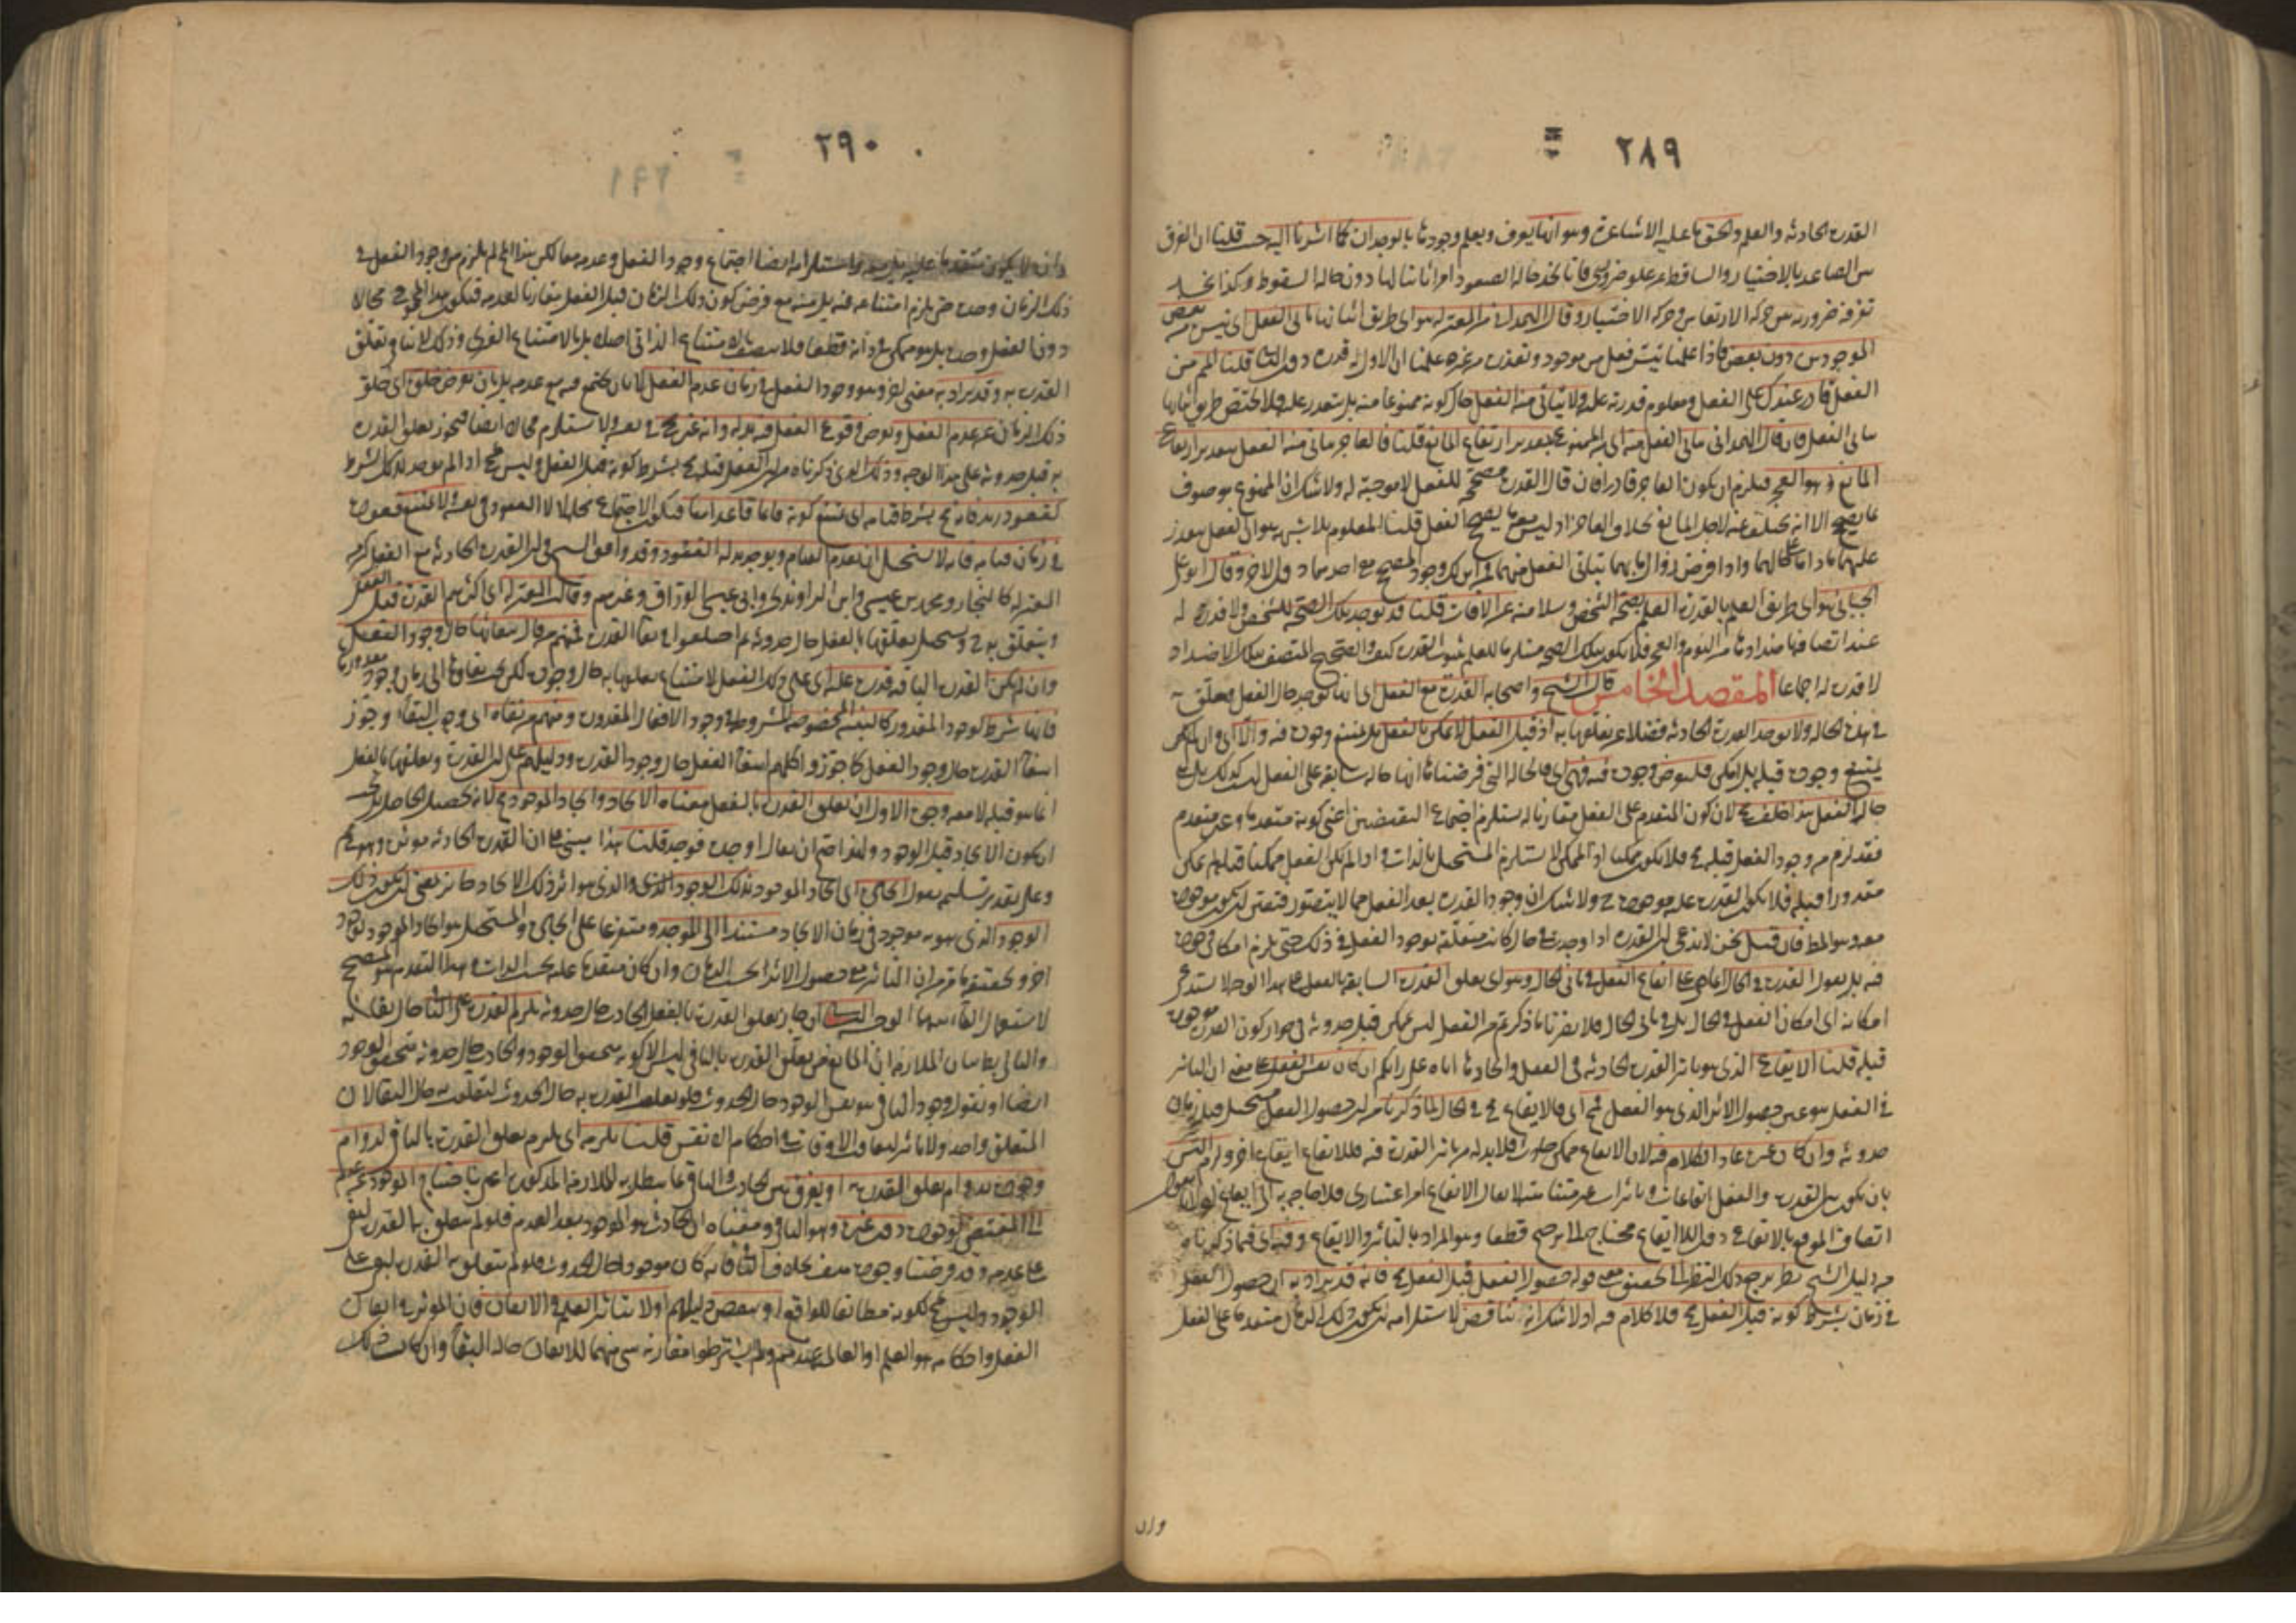 ٢٨٩
القدرة الحادثة والعلم والحق ما عليه الاشاعرة وهو انها يعرف ويعلم وجودها بالوجدان كما اشرنا اليه حيث قلنا ان الفرق
بين الصاعد بالاختيار والساقط عن علو ضروري فانا نجد حالة الصعود امرا ثابتا لها دون حالة السقوط وكذا نجد
تفرقة ضرورية بين حركة الارتعاش وحركة الاختيار وقال الهمداني من المعتزلة هو اي طريق اثباتها تأتي الفعل اي تيسره من بعض
الموجودين دون بعض فاذا علمنا تيسر فعل من موجود وتعذره من غيره علمنا ان الاول له قدرة دون الثاني قلنا الممنوع من
الفعل قادر عندك على الفعل ومعلوم قدرته عليه ولا يتأتى منه الفعل حال كونه ممنوعا منه بل يتعذر عليه فلا يختص طريق اثباتها
بتأتي الفعل فان قال الهمداني يتأتى الفعل منه اي من الممنوع بتقدير ارتفاع المانع قلنا فالعاجز يتأتى منه الفعل بتقدير ارتفاع
المانع وهو العجز فيلزم ان يكون العاجز قادرا فان قال القدرة مصححة للفعل لا موجبة له ولا شك ان الممنوع موصوف
بما يصحح الا انه تخلف عنه لاجل المانع بخلاف العاجز اذ ليس معه ما يصحح الفعل قلنا المعلوم بلا شبهة هو ان الفعل متعذر
عليهما ما داما على حالهما واذا فرض زوال ما بهما يتأتى الفعل منهما فمن اين لك وجود المصحح مع احدهما دون الآخر وقال ابو علي
الجبائي هو اي طريق العلم بالقدرة العلم بصحة الشخص وسلامته عن الآفات قلنا قد توجد تلك الصحة للشخص ولا قدرة له
عند اتصافها باضدادها من النوم والعجز فلا يكون تلك الصحة مستلزما للعلم بثبوت القدرة كيف والصحيح المتصف بتلك الاضداد
لا قدرة له اجماعا المقصد الخامس قال الشيخ واصحابه القدرة مع الفعل اي انها توجد حال الفعل وتتعلق به
في هذه الحالة ولا توجد القدرة الحادثة فضلا عن تعلقها به اذ قبل الفعل لا يمكن الفعل بل يمتنع وجوده فيه والا اي وان لم
يمتنع وجوده قبله بل امكن فلنفرض وجوده فيه فهي اي فالحالة التي فرضناها انها حالة سابقة على الفعل ليست كذلك بل هي
حال الفعل هذا خلف لان كون المتقدم على الفعل مقارنا له يستلزم اجتماع النقيضين اعني كونه متقدما وغير متقدم
فقد لزم من وجود الفعل قبله فلا يكون ممكنا اذ الممكن لا يستلزم المستحيل بالذات واذا لم يكن الفعل ممكنا قبله لم يكن
مقدورا قبله فلا يكون القدرة عليه موجودة ولا شك ان وجود القدرة بعد الفعل مما لا يتصور فتعين ان يكون موجودة
معه وهو المط فان قيل نحن لا ندعي ان القدرة اذا وجدت في حال كانت متعلقة بوجود الفعل في ذلك حتى يلزم امكان وجوده
فيه بل نقول القدرة في الحال ايقاع الفعل في ثاني الحال وهو اي تعلق القدرة السابقة بالفعل على هذا الوجه لا يستدعي
امكانه اي امكان الفعل في الحال بل في ثاني الحال فلا يضرنا ما ذكرتم من الفعل ليس يمكن قبل حدوثه في جواز كون القدرة موجودة
قبله قلنا الايقاع الذي هو تأثير القدرة الحادثة في الفعل وايجادها اياه على رأيكم ان كان نفس الفعل على معنى ان التأثير
في الفعل هو عين حصول الاثر الذي هو الفعل فمحال اي فالايقاع محال في الحال لما ذكرنا من ان حصول الفعل مستحيل قبل زمان
حدوثه وان كان غيره عاد الكلام فيه لان الايقاع ممكن حادث فلا بد له من تأثير القدرة فيه فللايقاع ايقاع آخر ولزم التس
بان يكون بين القدرة والفعل ايقاعات وتأثيرات غير متناهية لا يقال الايقاع امر اعتباري فلا حاجة به الى ايقاع لانا نقول
اتصاف الموقع بالايقاع دون اللاايقاع محتاج الى مرجح قطعا وهو المراد بالتأثير والايقاع وفيه اي فيما ذكرناه
من دليل الشيخ نظر يرجع ذلك النظر الى تحقيق معنى قوله حصول الفعل قبل الفعل محال فانه قد يراد به ان حصول الفعل
في زمان بشرط كونه قبل الفعل محال فلا كلام فيه اذ لا شك انه تناقض لاستلزامه ان يكون ذلك الزمان متقدما على الفعل
وان
٢٩٠
وان لا يكون متقدما عليه بل معه واستلزامه ايضا اجتماع وجود الفعل وعدمه معا لكن هذا المحال لم يلزم من وجود الفعل في
ذلك الزمان وحده حتى يلزم امتناعه فيه بل منه مع فرض كون ذلك الزمان قبل الفعل مقارنا لعدمه فيكون هذا المجموع محالا
دون الفعل وحده بل هو ممكن في ذاته قطعا فلا يتصف بالامتناع الذاتي اصلا بل بالامتناع الغيري وذلك لا ينافي تعلق
القدرة به وقد يراد به معنى آخر وهو وجود الفعل في زمان عدم الفعل لا بان يجتمع فيه مع عدمه بل بان يفرض خلو اي خلو
ذلك الزمان عن عدم الفعل ويفرض وقوع الفعل فيه بدله وانه غير محال في نفسه ولا يستلزم محالا ايضا فيجوز تعلق القدرة
به قبل حدوثه على هذا الوجه وذلك الذي ذكرناه من ان الفعل قبله محال بشرط كونه قبل الفعل وليس محال اذا لم يوجد ذلك الشرط
كقعود زيد فانه محال بشرط قيامه اي يمتنع كونه قائما قاعدا معا فيكون الاجتماع محالا لا القعود في نفسه ولا يمتنع قعوده
في زمان قيامه فانه لا يستحيل ان يعدم القيام ويوجد بدله القعود وقد وافق الشيخ في ان القدرة الحادثة مع الفعل كثير من
المعتزلة كالنجار ومحمد بن عيسى وابن الراوندي وابي عيسى الوراق وغيرهم وقالت المعتزلة اي اكثرهم القدرة قبل الفعل
ويتعلق به ويستحيل تعلقها بالفعل حال حدوثه ثم اختلفوا في بقاء القدرة فمنهم من قال ببقائها حال وجود الفعل
وان لم تكن القدرة الباقية قدرة عليه اي على ذلك الفعل لامتناع تعلقها به حال وجوده لكن يجب بقاؤها الى زمان وجود مقدورها
فانها شرط لوجود المقدور كالبنية المخصوصة المشروطة في وجود الافعال المقدورة ومنهم من نفاه اي وجوب البقاء وجوز
انتفاء القدرة حال وجود الفعل كما جوزوا كلهم انتفاء الفعل حال وجود القدرة ودليلهم على ان القدرة وتعلقها بالفعل
انما هو قبله لا معه وجوه الاول ان تعلق القدرة بالفعل معناه الايجاد وايجاد الموجود محال لانه تحصيل الحاصل بل يجب
ان يكون الايجاد قبل الوجود ولهذا صح ان يقال اوجده فوجد قلنا هذا مبني على ان القدرة الحادثة مؤثرة وهو مم
وعلى تقدير تسليمه نقول ايجاد الموجود بذلك الوجود الذي هو اثر ذلك الايجاد جائز بمعنى ان يكون ذلك
الوجود الذي هو به موجود في زمان الايجاد مستندا الى الموجد ومتفرعا على ايجاده والمستحيل هو ايجاد الموجود بوجود
آخر وتحقيقه ما مر من ان التأثير مع حصول الاثر بحسب الزمان وان كان متقدما عليه بحسب الذات وهذا التقدم هو المصحح
لاستعمال الفاء بينهما الوجه الثاني ان جاز تعلق القدرة بالفعل الحادث حال حدوثه يلزم القدرة على الباقي حال بقائه
والتالي بط بيان الملازمة ان المانع من تعلق القدرة بالباقي ليس الا كونه متحقق الوجود والحادث حال حدوثه متحقق الوجود
ايضا او نقول وجود الباقي هو نفس الوجود حال الحدوث فلو تعلقت القدرة به حال الحدوث لتعلقت به حال البقاء لان
المتعلق واحد ولا تأثير لتعاقب الاوقات في احكام الانفس قلنا نلتزمه اي يلزم تعلق القدرة بالباقي لدوام
وجوده بدوام تعلق القدرة به او نفرق بين الحادث والباقي بما يبطل به الملازمة المذكورة اعني باحتياج الموجود عن عدم
الى المقتضي لوجوده دون غيره وهو الباقي ومعناه ان الحادث هو الموجود بعد العدم فلو لم يتعلق به القدرة لبقي
على عدمه وقد فرضنا وجوده هذا خلف بخلاف الباقي فانه كان موجودا حال الحدوث فلو لم يتعلق به القدرة لبقي على
الوجود وليس محال لكونه مطابقا للواقع او ننقض دليلهم اولا بتأثير العلم في الاتقان فان المؤثر في اتقان
الفعل واحكامه هو العلم او العالمية عندهم ولم يشترطوا مقارنة شيء منهما للاتقان حالة البقاء وان كان ذلك